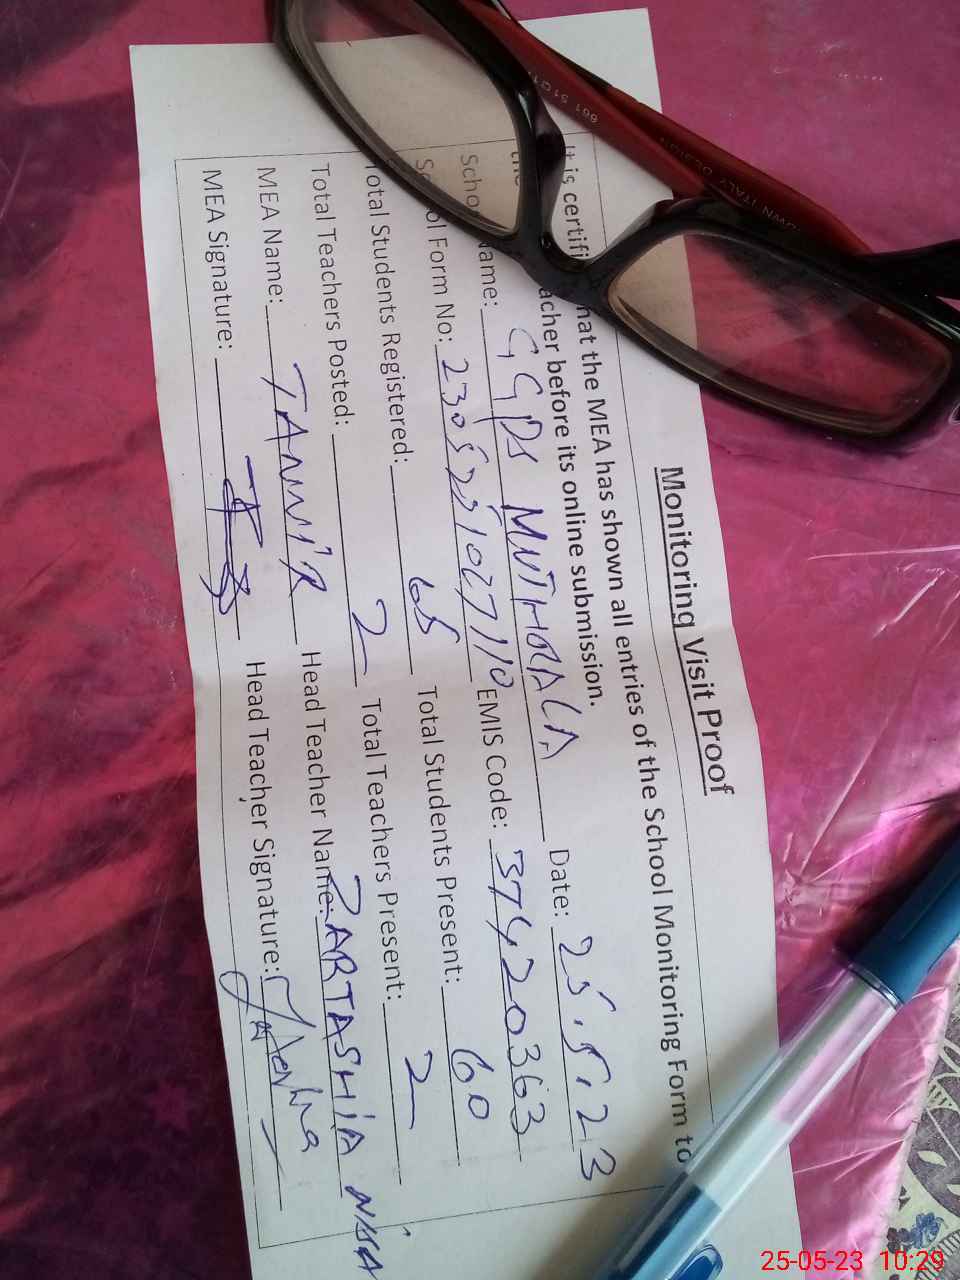 Monitoring Visit Proof
It is certifi hat the MEA has shown all entries of the School Monitoring Form to
the acher before its online submission.
School Name: GGPS MNTHRALA Date: 25.5.23
School Form No: EMIS Code: 37420363
Total Students Registered: 65 Total Students Present: 60
Total Teachers Posted: 2 Total Teachers Present: 2
MEA Name: TANVIR Head Teacher Name: ZARTASHIA NISA
MEA Signature: Head Teacher Signature:
661 51
ITALY DESIGN
25-05-23 10:29